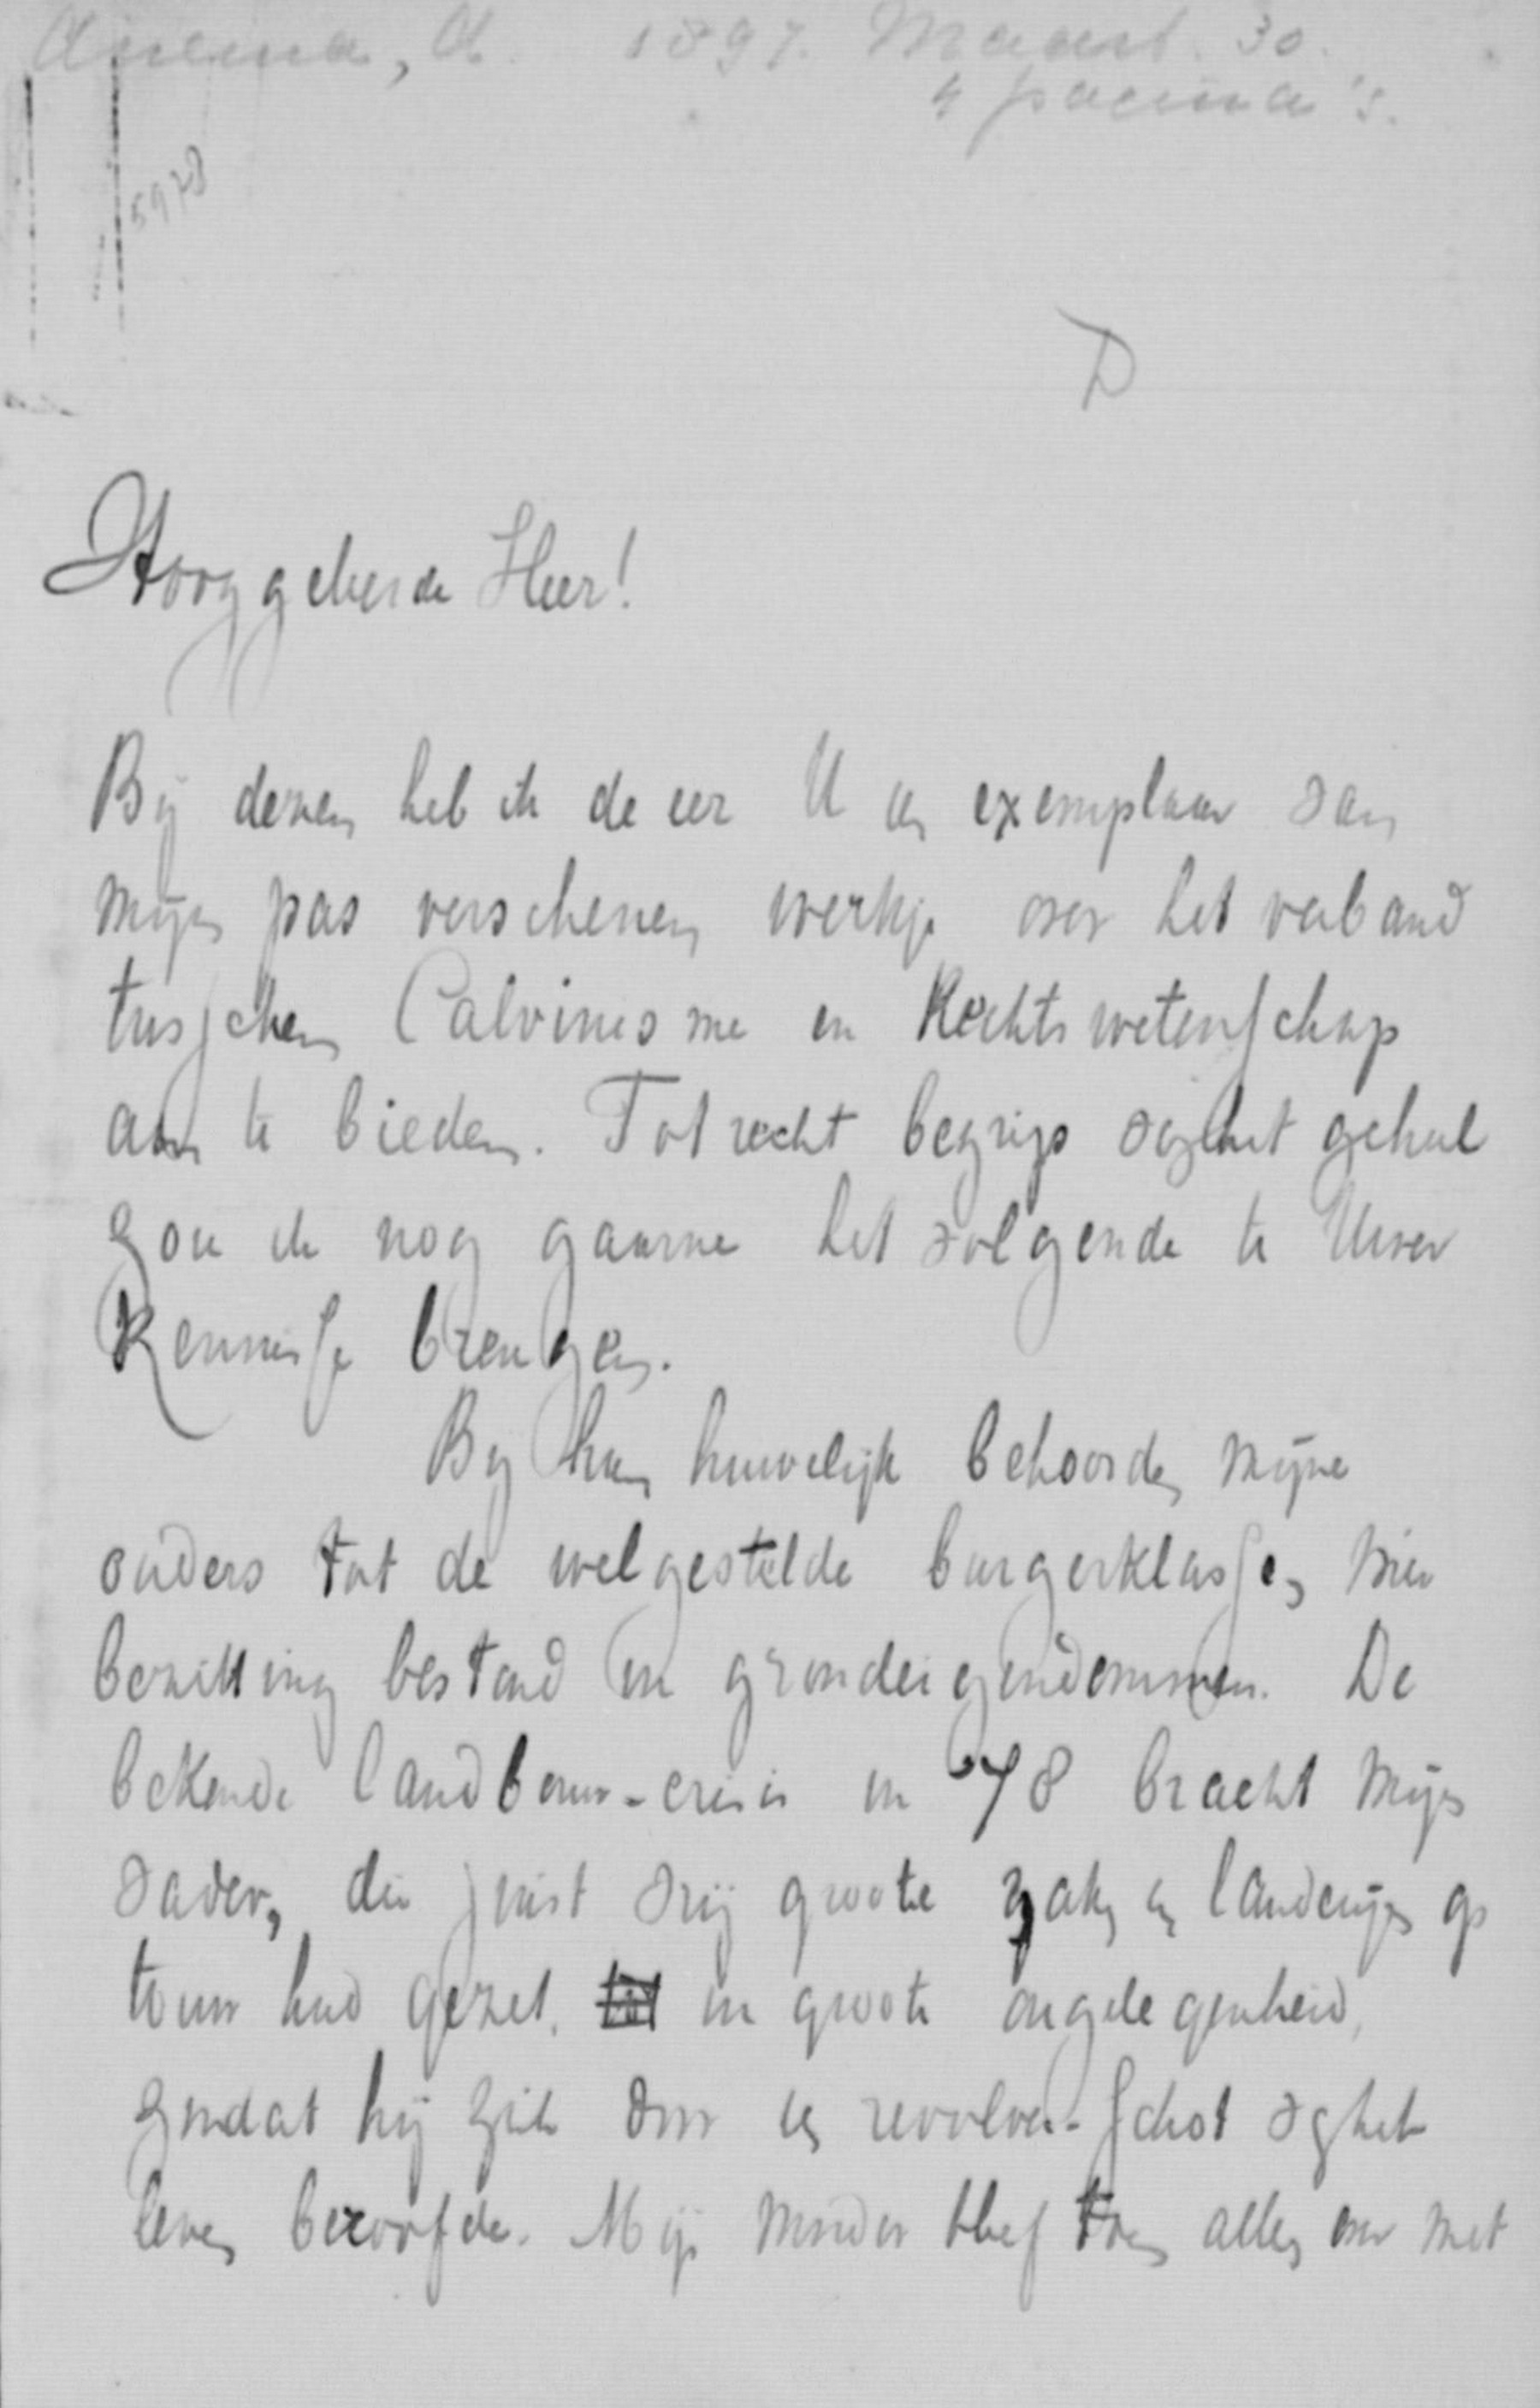 Anema, A. 1897. Maart. 30.
4 pagina's.
5978
D
Hooggeleerde Heer!
Bij dezen heb ik de eer U een exemplaar van
mijn pas verschenen werkje over het verband
tusschen Calvinisme en Rechtswetenschap
aan te bieden. Tot recht begrip van het geheel
zou ik nog gaarne het volgende te Uwer
kennisse brengen.
Bij hun huwelijk behoorden mijne
ouders tot de welgestelde burgerklasse, wier
bezitting bestond in grondeigendommen. De
bekende landbouw-crisis in '78 bracht mijn
vader, die juist vrij groote zaken in landerijen op
touw had gezet, in groote ongelegenheid,
zoodat hij zich door een revolver-schot van het
leven beroofde. Mijn moeder bleef toen alleen over met